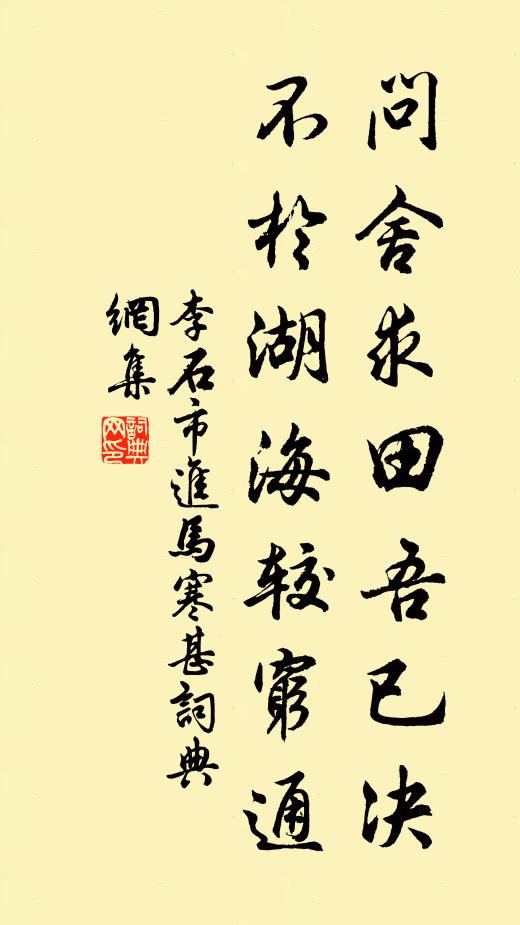 問舍求田吾已决
不於湖海较窮通
李石市進馬寒甚詞典
網集
詞典
网印